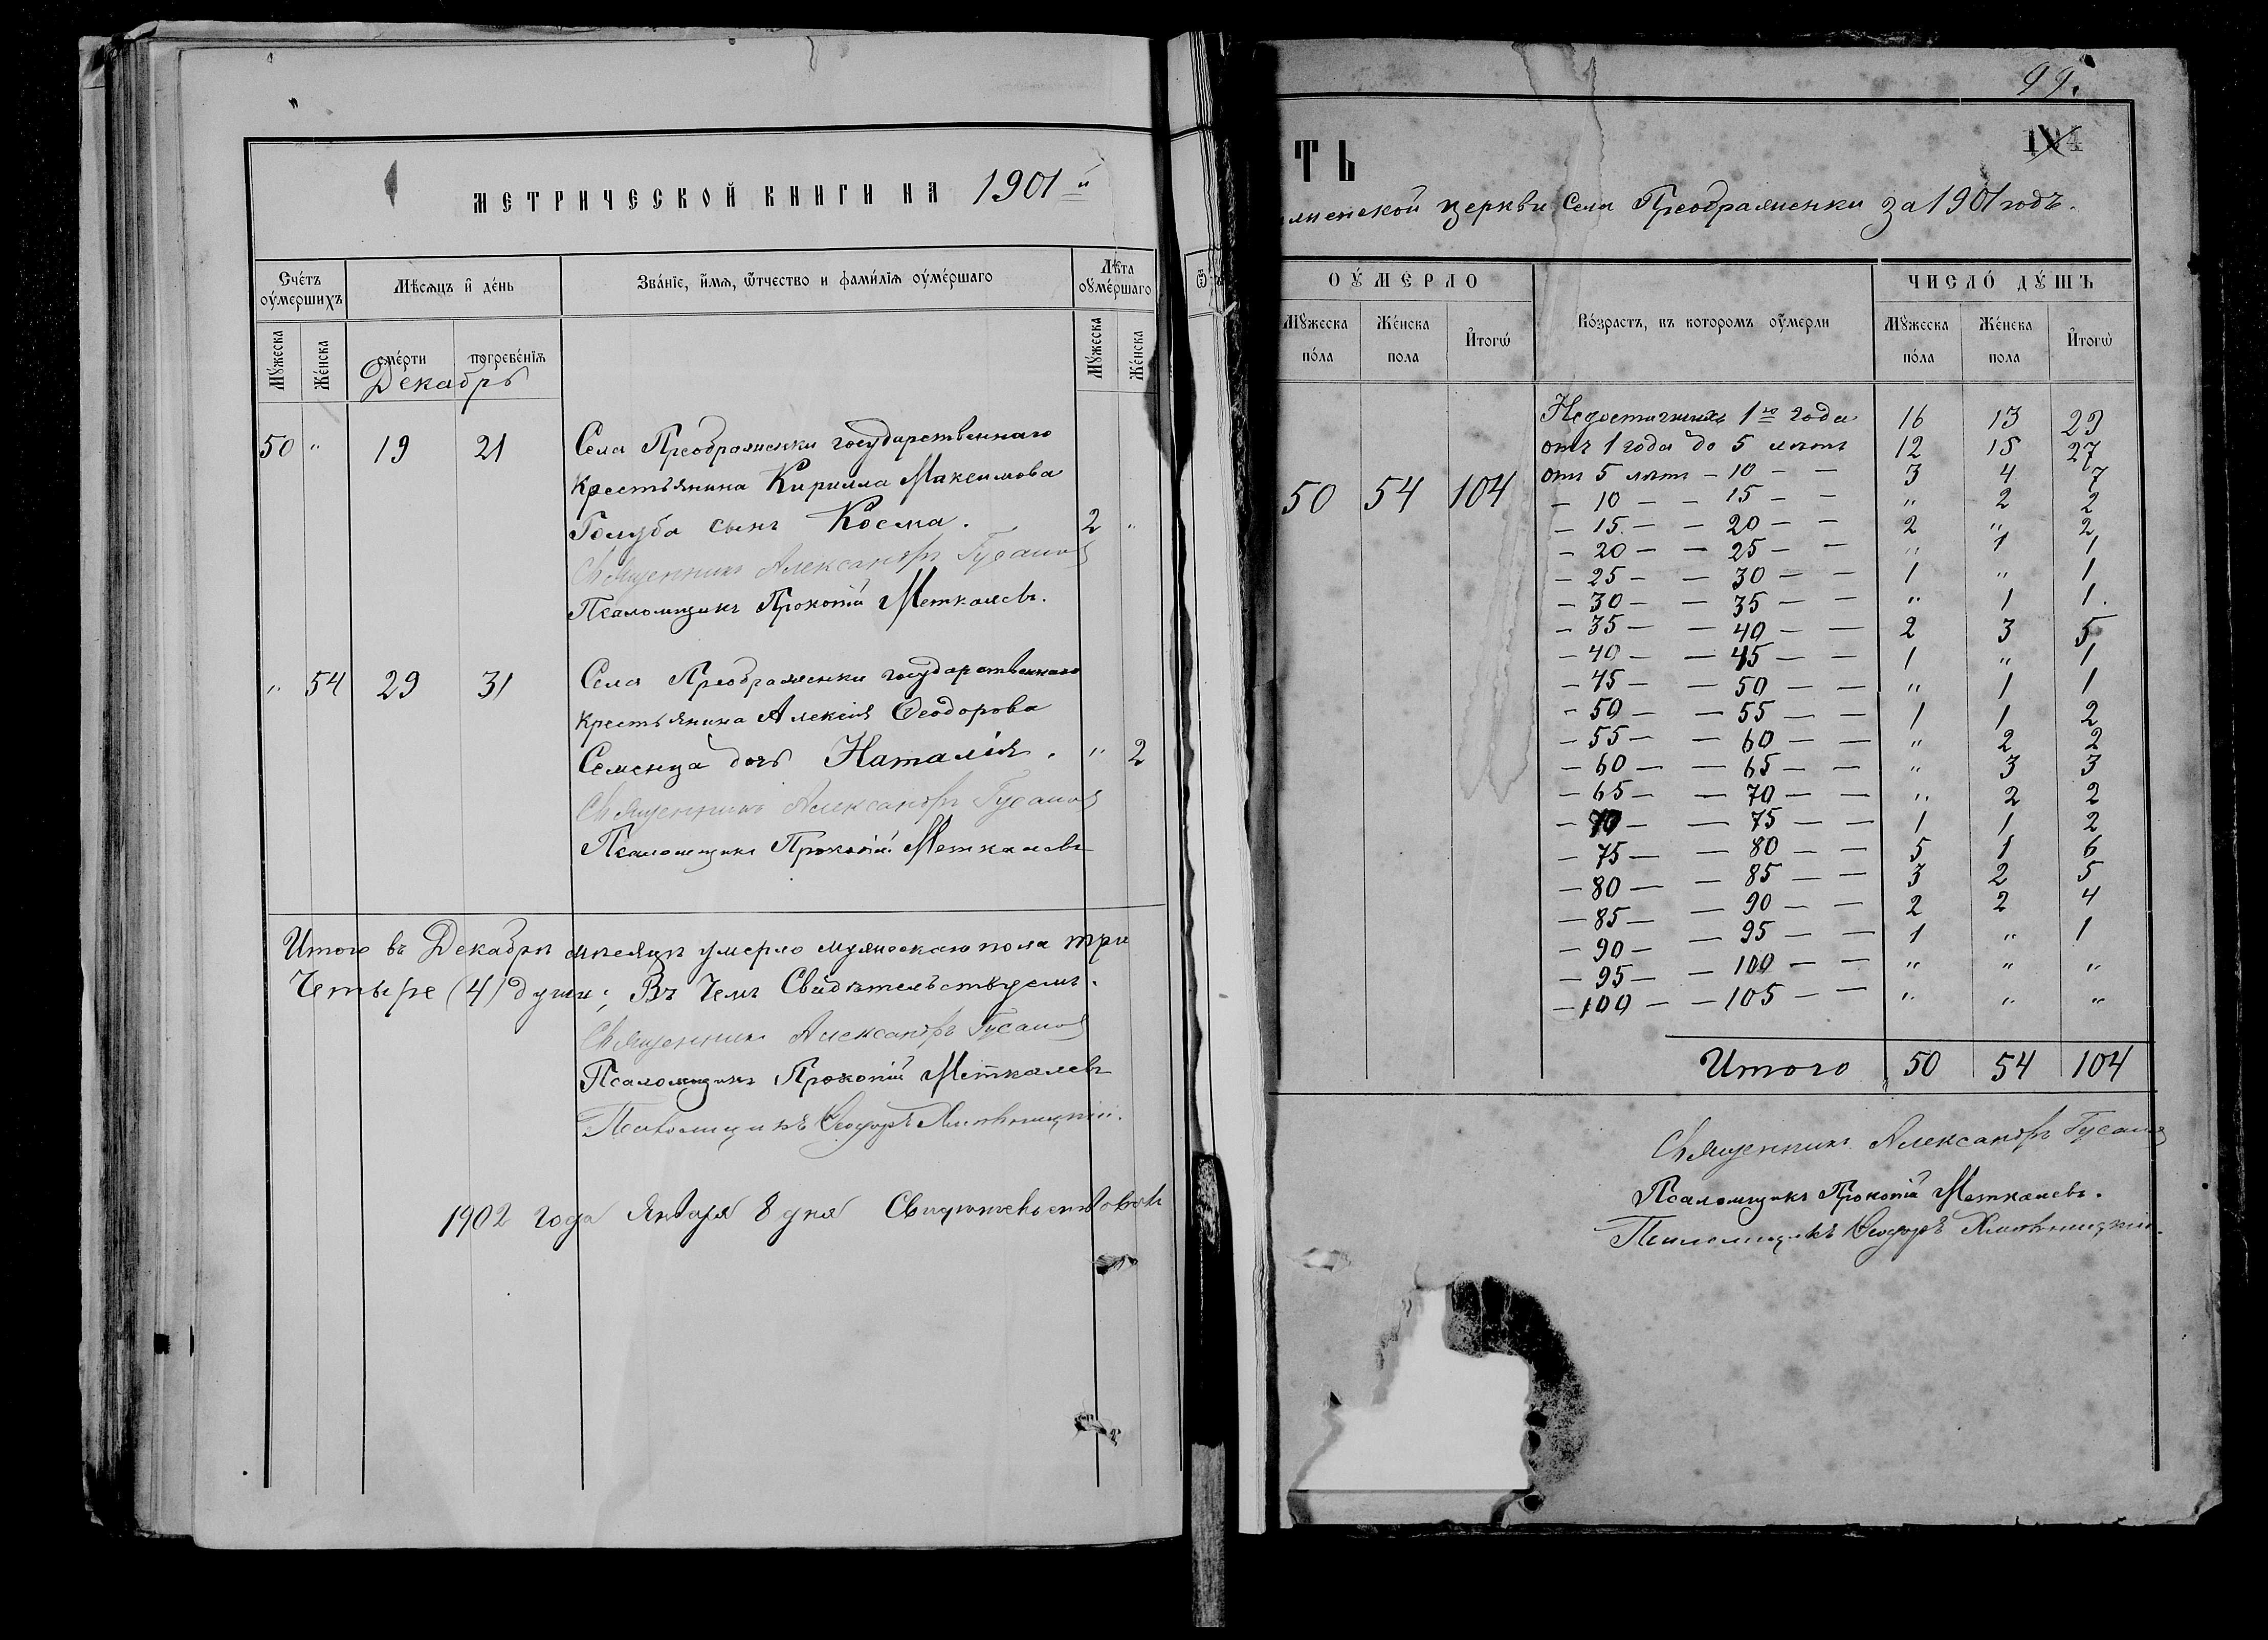 МЕТРИЧЕСКОЙ КНИГИ НА 1901й
Сче́тъ оу҆ме́ршихъ
Мѣсѧцъ и҆ де́нь
Зва́нїе, и҆́мѧ, ѻ҆́тчество и фами́лїѧ оу҆ме́ршаго
Лѣта оу҆ме́ршаго
Мꙋ́жеска
Же́нска
сме́рти
погребе́нїѧ
Мꙋ́жеска
Же́нска
Декабрь
50 " 19 21 Села Преображенки государственнаго
крестьянина Кирилла Максимова
Голуба сынъ Косма. 2 "
Священникъ Александръ Гусаковъ
Псаломщикъ Прокопій Меткалевъ.
" 54 29 31 Села Преображенки государственнаго
крестьянина Алексія Ѳеодорова
Семенца дочь Наталія. " 2
Священникъ Александръ
Псаломщикъ Прокопій Меткалевъ
Итого въ Декабрѣ мѣсяцѣ умерло мужескаго пола три
Четыре (4) души; Въ чемъ Свидѣтельствуемъ.
Священникъ Александръ
Псаломщикъ Прокопій Меткалевъ
Псаломщикъ Ѳеодоръ
1902 года Января 8 дня Свидѣтельствовалъ
99.
184
ТЬ
женской церкви Села Преображенки за 1901 годъ.
ОУ҆МЕРЛО
Во́зрастъ, въ которомъ оу҆мерли
ЧИСЛО́ ДꙊ́ШЪ
Мꙋ́жеска по́ла
Же́нска пола
И҆тогѡ̀
Мꙋ́жеска по́ла
Же́нска пола
И҆тогѡ̀
50 54 104
Недостигшихъ 1го года 16 13 29
отъ 1 года до 5 лѣтъ 12 15 27
отъ 5 лѣтъ – 10 – – 3 4 7
– 10 – – 15 – – " 2 2
– 15 – – 20 – – 2 " 2
– 20 – – 25 – – " 1 1
– 25 – – 30 – – 1 " 1
– 30 – – 35 – – " 1 1.
– 35 – – 40 – – 2 3 5
– 40 – – 45 – – 1 " 1
– 45 – – 50 – – " 1 1
– 50 – – 55 – – 1 1 2
– 55 – – 60 – – " 2 2
– 60 – – 65 – – " 3 3
– 65 – – 70 – – " 2 2
– 70 – – 75 – – 1 1 2
– 75 – – 80 – – 5 1 6
– 80 – – 85 – – 3 2 5
– 85 – – 90 – – 2 2 4
– 90 – – 95 – – 1 " 1
– 95 – – 100 – – " " "
– 100 – – 105 – – " " "
Итого 50 54 104
Священникъ Александръ
Псаломщикъ Прокопій Меткалевъ.
Псаломщикъ Ѳеодоръ